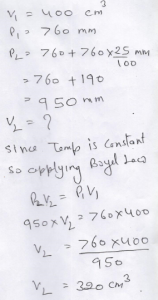 V₁ = 400 cm³
P₁ = 760 mm
P₂ = 760 + 760 × 25/100 mm
= 760 + 190
= 950 mm
V₂ = ?
since Temp is constant
so applying Boyel Law
P₂V₂ = P₁V₁
950 × V₂ = 760 × 400
V₂ = 760 × 400 / 950
V₂ = 320 cm³